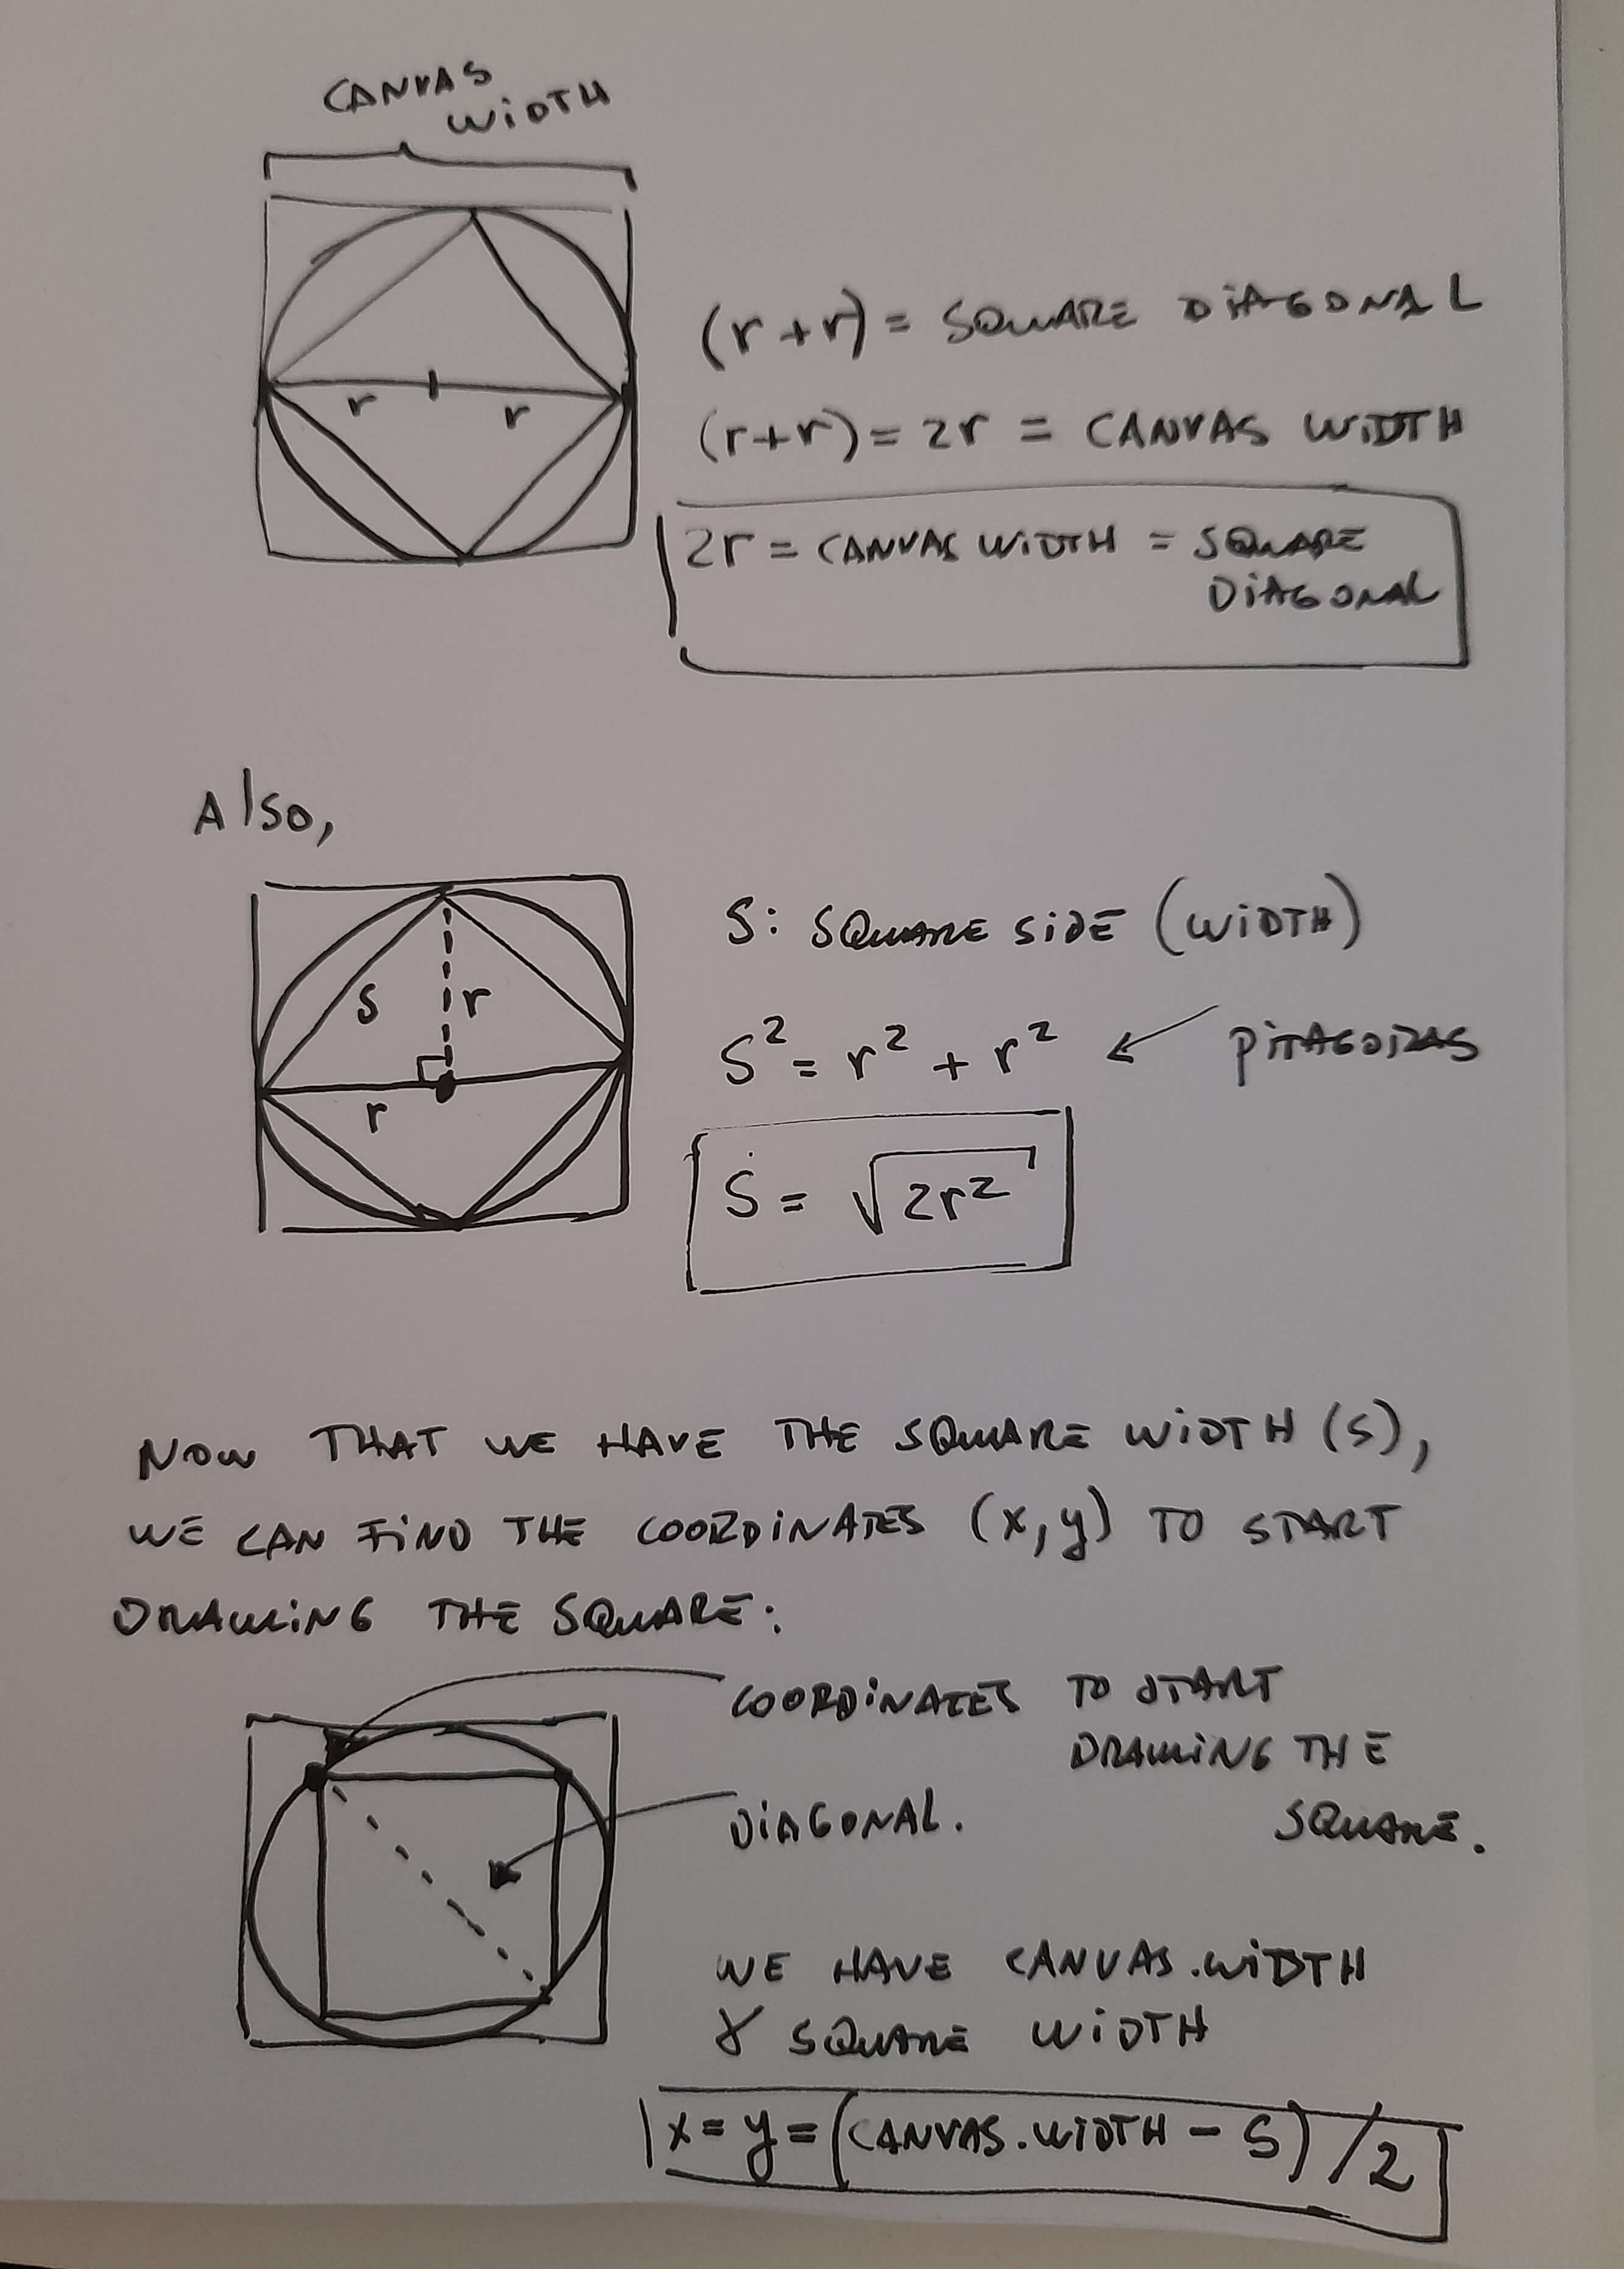 CANVAS
WiDTH
r
r
(r+r) = SQUARE DiAGONAL
(r+r) = 2r = CANVAS WiDTH
2r = CANVAS WiDTH = SQUARE
DiAGONAL
Also,
S
r
r
S: SQUARE SiDE (WiDTH)
S² = r² + r² ← PiTAGORAS
S = √2r²
NOW THAT WE HAVE THE SQUARE WiDTH (S),
WE CAN FiND THE COORDiNATES (x,y) TO START
DRAWiNG THE SQUARE:
COORDiNATES TO START
DRAWiNG THE
SQUARE.
DiAGONAL.
WE HAVE CANVAS.WiDTH
& SQUARE WiDTH
x = y = (CANVAS.WiDTH - S) / 2